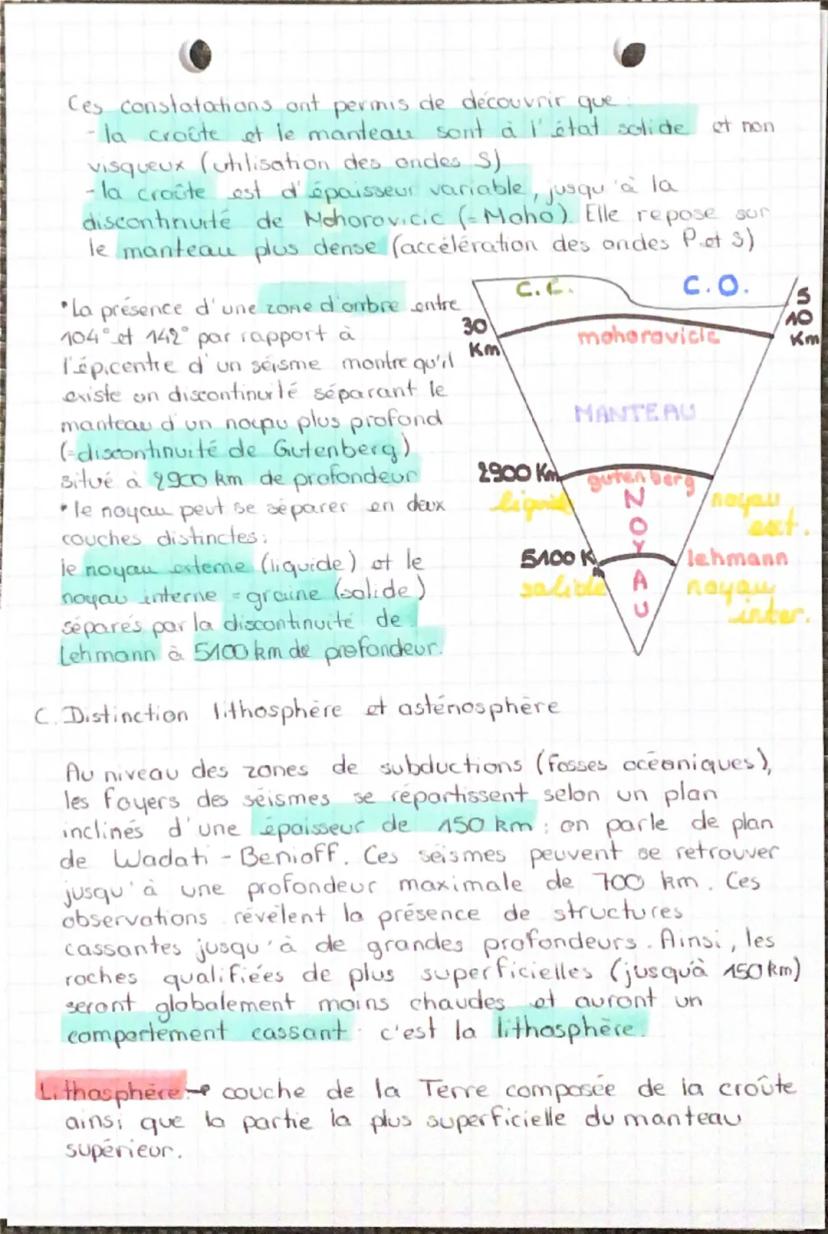 Ces constatations ont permis de découvrir que :
- la croûte et le manteau sont à l'état solide et non
visqueux (utilisation des ondes S)
- la croûte est d'épaisseur variable, jusqu'à la
discontinuité de Mohorovicic (= Moho). Elle repose sur
le manteau plus dense (accélération des ondes P et S)
• La présence d'une zone d'ombre entre
104° et 142° par rapport à
l'épicentre d'un séisme montre qu'il
existe un discontinuité séparant le
manteau d'un noyau plus profond
(=discontinuité de Gutenberg)
situé à 2900 km de profondeur
• le noyau peut se séparer en deux
couches distinctes :
le noyau externe (liquide) et le
noyau interne = graine (solide)
séparés par la discontinuité de
Lehmann à 5100 km de profondeur.
C.C.
C.O.
30
Km
5
10
Km
mohorovicic
MANTEAU
2900 Km
gutenberg
liquide
NOYAU
noyau
ext.
5100 Km
lehmann
solide
noyau
inter.
C. Distinction lithosphère et asténosphère
Au niveau des zones de subductions (fosses océaniques),
les foyers des séismes se répartissent selon un plan
inclinés d'une épaisseur de 150 km : on parle de plan
de Wadati - Benioff. Ces séismes peuvent se retrouver
jusqu'à une profondeur maximale de 700 km. Ces
observations révèlent la présence de structures
cassantes jusqu'à de grandes profondeurs. Ainsi, les
roches qualifiées de plus superficielles (jusqu'à 150 km)
seront globalement moins chaudes et auront un
comportement cassant : c'est la lithosphère.
Lithosphère → couche de la Terre composée de la croûte
ainsi que la partie la plus superficielle du manteau
supérieur.